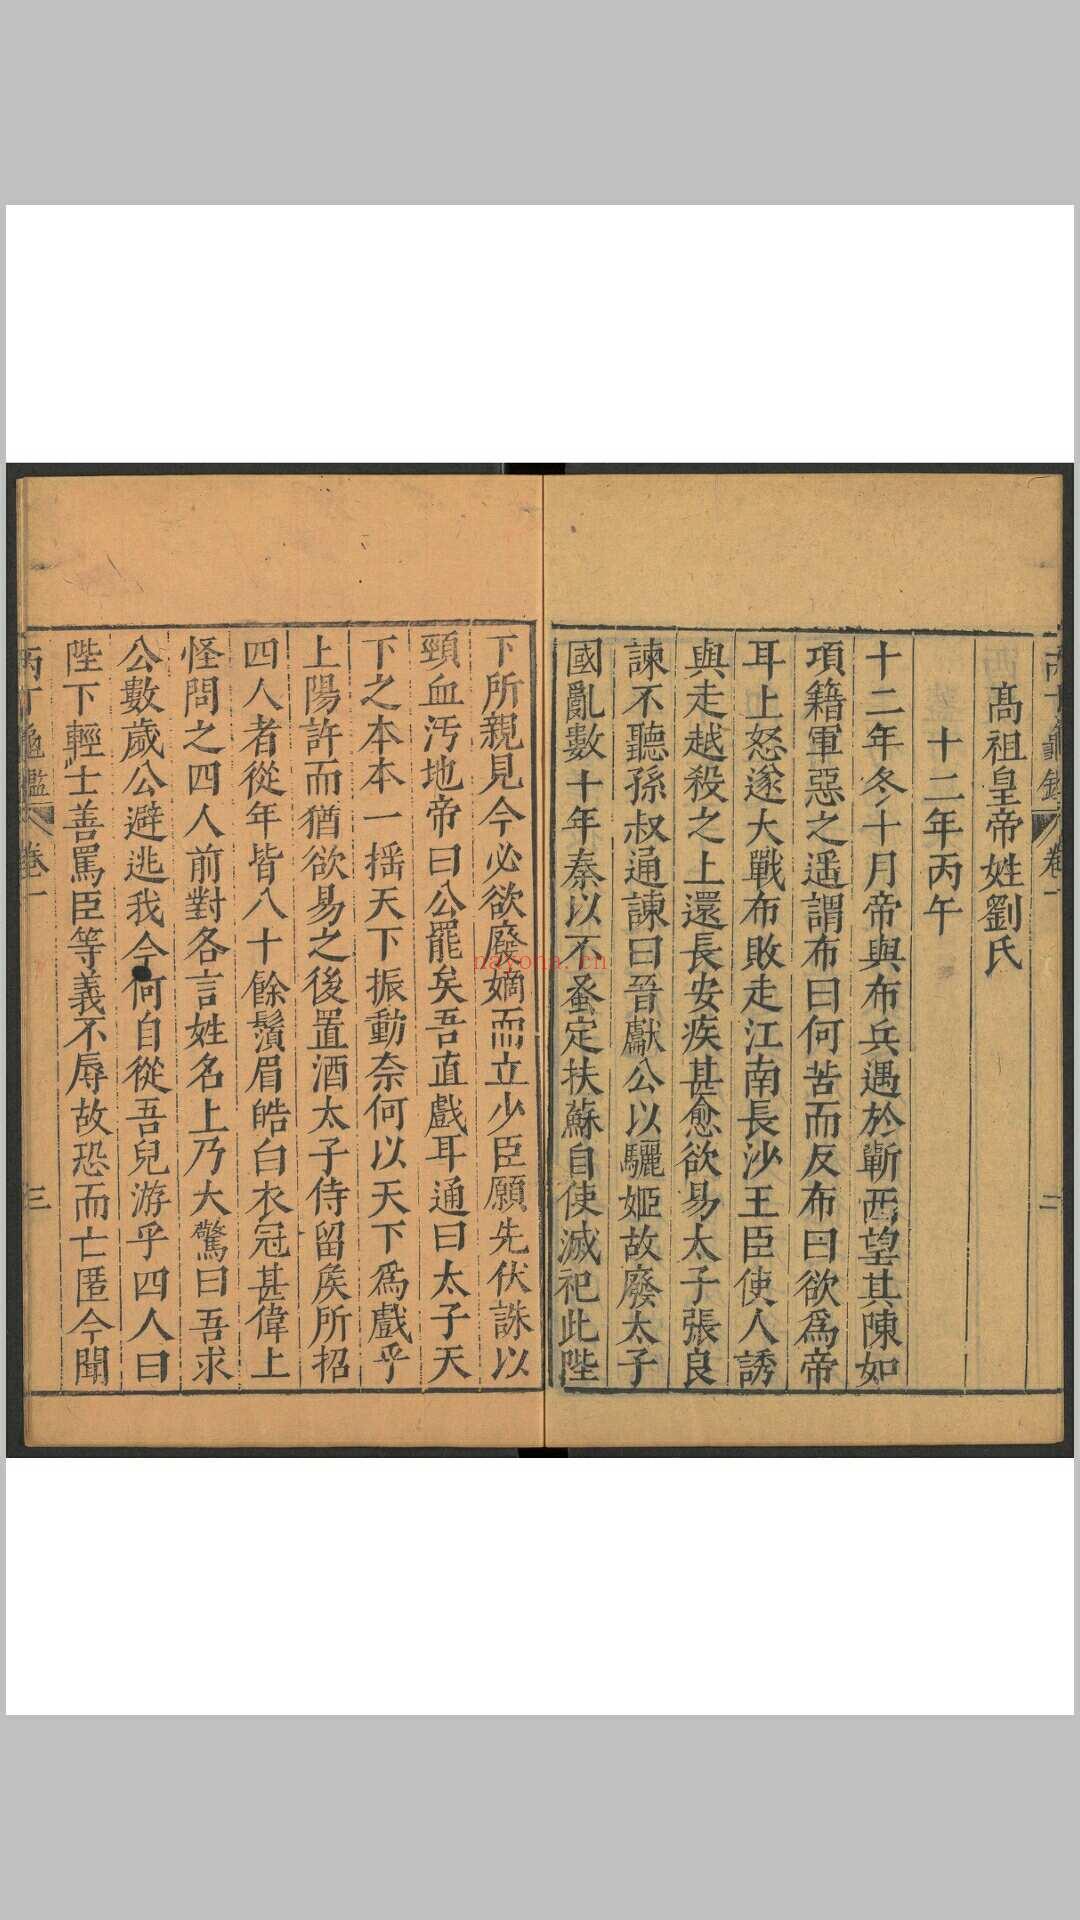 高祖皇帝姓劉氏
十二年丙午
十二年冬十月帝與布兵遇於蘄西望其陳如
項籍軍惡之遥謂布曰何苦而反布曰欲為帝
耳上怒遂大戰布敗走江南長沙王臣使人誘
與走越殺之上還長安疾甚愈欲易太子張良
諫不聽孫叔通諫曰晉獻公以驪姬故廢太子
國亂數十年秦以不蚤定扶蘇自使滅祀此陛
下所親見今必欲廢嫡而立少臣願先伏誅以
頸血汚地帝曰公罷矣吾直戲耳通曰太子天
下之本本一揺天下振動奈何以天下為戲乎
上陽許而猶欲易之後置酒太子侍留矦所招
四人者從年皆八十餘鬚眉皓白衣冠甚偉上
怪問之四人前對各言姓名上乃大驚曰吾求
公數歲公避逃我今何自從吾兒游乎四人曰
陛下輕士善罵臣等義不辱故恐而亡匿今聞
丙丁龜鑑
卷一
三
卷一
二
nayona.cn